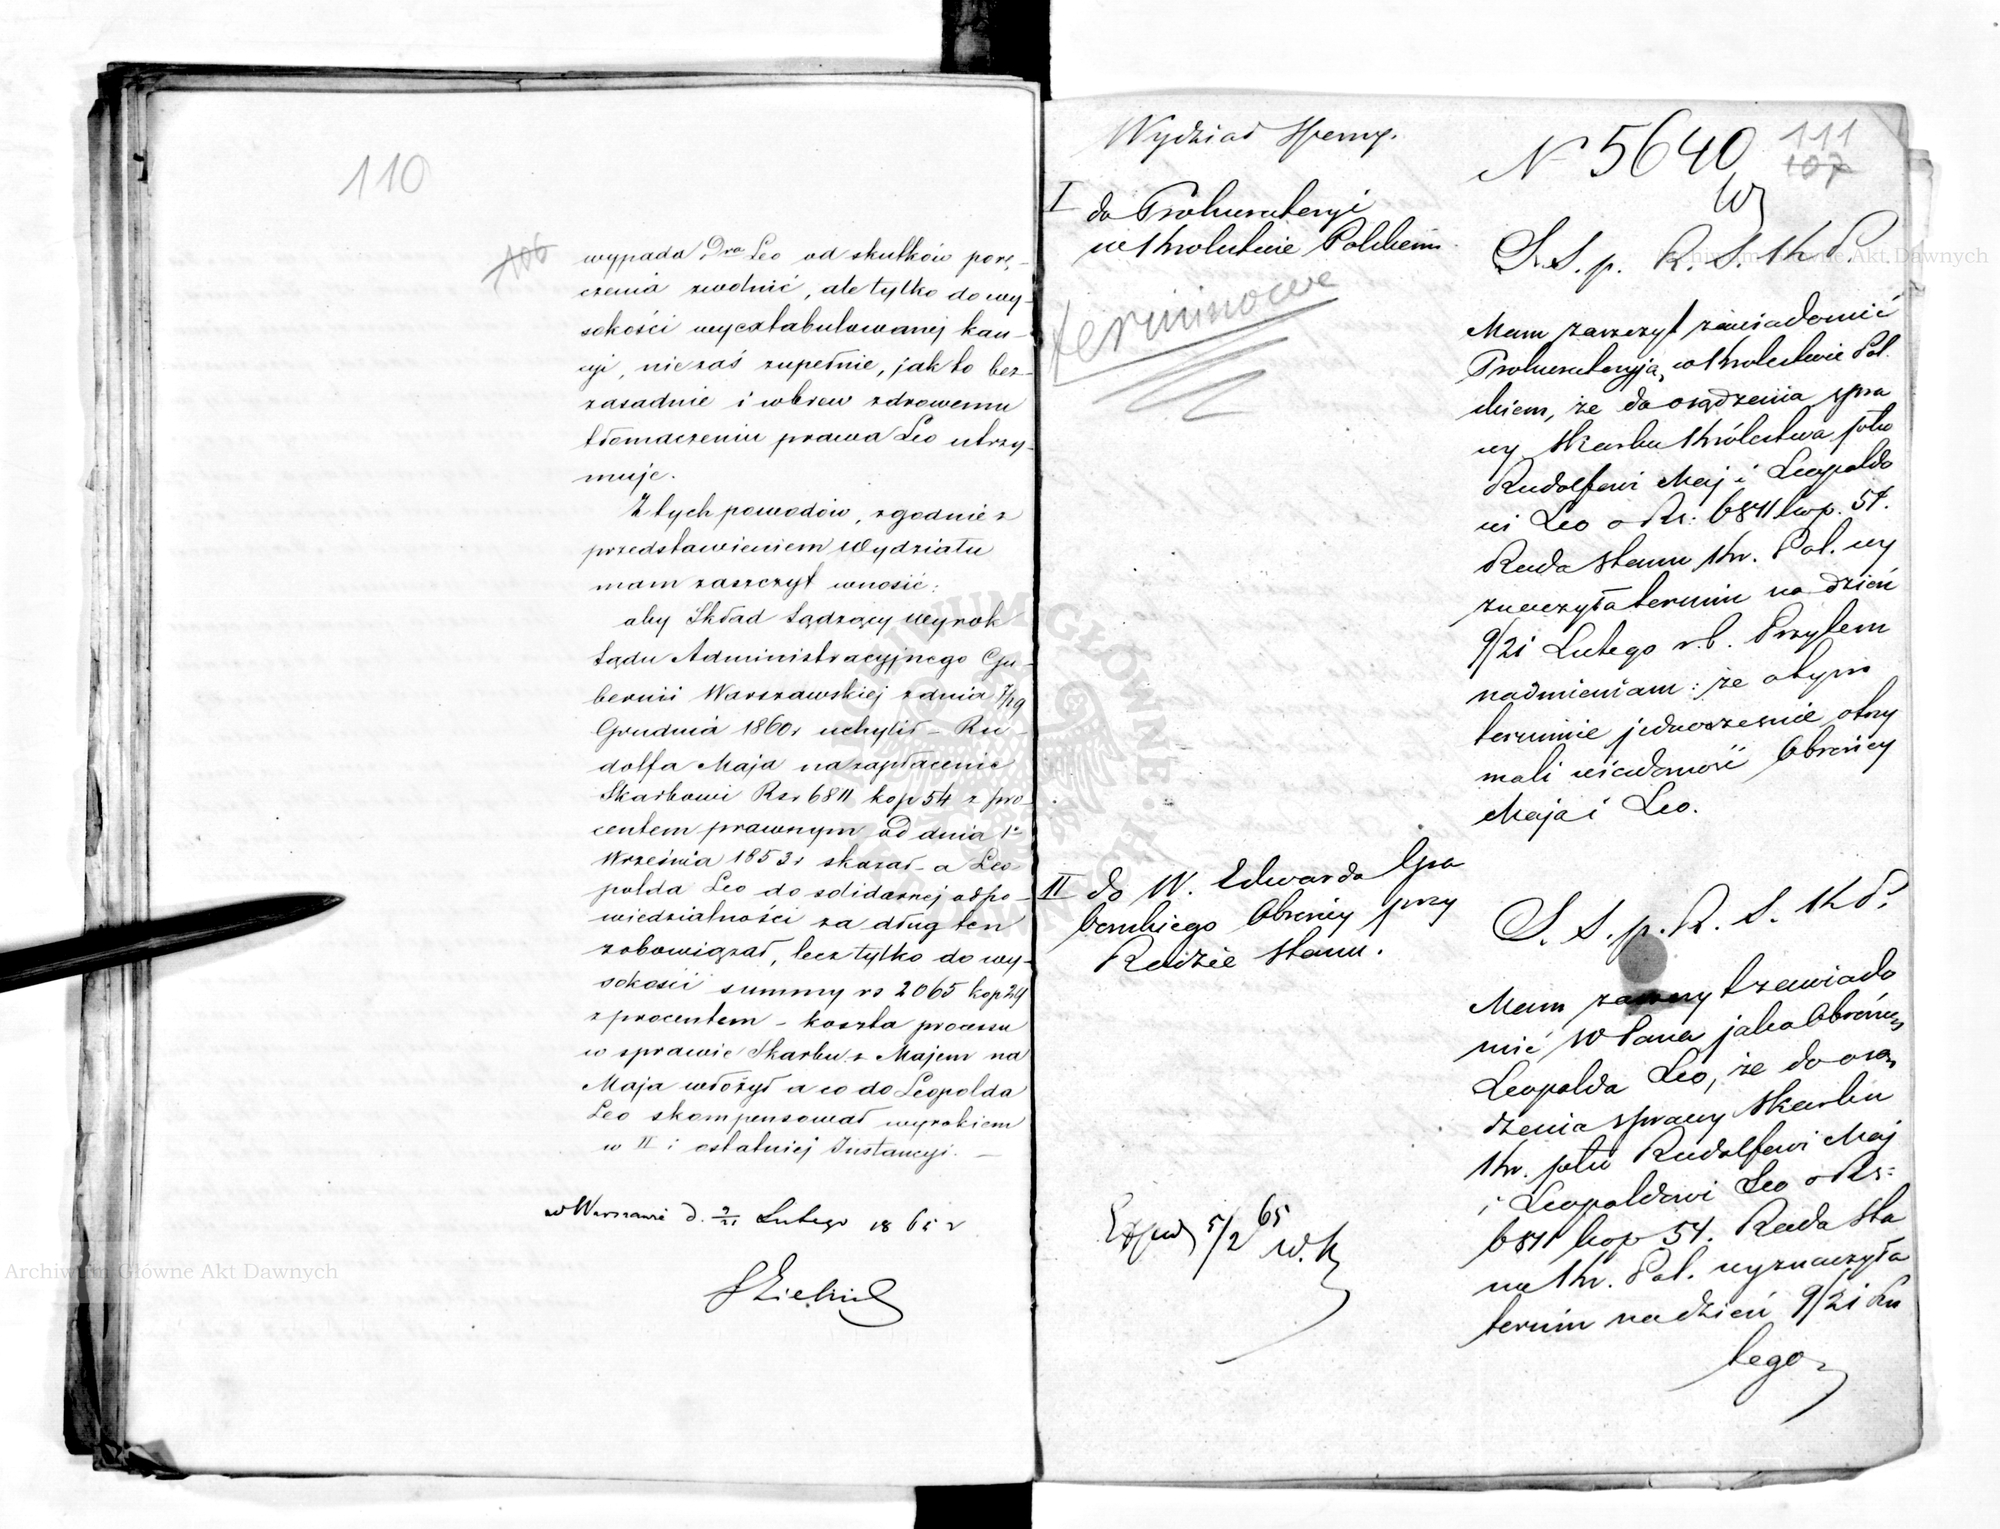 110
106
wypada Dra Leo od skutków porę-
czenia zwolnić, ale tylko do wy-
sokości wyextabulowanej kau-
cyi, nie zaś zupełnie, jak to bez-
zasadnie i wbrew zdrowemu
tłomaczeniu prawa Leo utrzy-
muje.
Z tych powodów, zgodnie z
przedstawieniem Wydziału
mam zaszczyt wnosić:
aby Skład Sądzący Wyrok
Sądu Administracyjnego Gu-
bernii Warszawskiej z dnia 7/19
Grudnia 1860 r uchylił - Ru-
dolfa Maja na zapłacenie
Skarbowi Rsr 6811 kop 54 z pro-
centem prawnym od dnia 1o
Września 1853 r skazał - a Leo-
polda Leo do solidarnej odpo-
wiedzialności za dług ten
zobowiązał, lecz tylko do wy-
sokości summy rs 2065 kop 24
z procentem - koszta processu
w sprawie Skarbu z Majem na
Maja włożył a co do Leopolda
Leo skompensował wyrokiem
w II i ostatniej Instancyi. -
w Warszawie d. 9/21 Lutego 1865 r
Archiwum Główne Akt Dawnych
Wydział Sporny.
N 5640
111
107
I do Prokuratoryi
w Królestwie Polskiem
terminowe
S. S. p. R. S. Kr. P.
Archiwum Główne Akt Dawnych
Mam zaszczyt zawiadomić
Prokuratoryją w Królestwie Pol-
skiem, że do osądzenia spra
wy Skarbu Królestwa ptko
Rudolfowi Maj i Leopoldo
wi Leo o Rs: 6811 kop. 54.
Rada Stanu Kr. Pol. wy
znaczyła termin na dzień
9/21 Lutego r. b. Przytem
nadmieniam: że o tym
terminie jednocześnie otrzy
mali wiadomość Obrońcy
Maja i Leo.
II do W. Edwarda Gra
bowskiego Obrońcy przy
Radzie Stanu.
S. S. p. R. S. Kr P.
Mam zaszczyt zawiado
mić W Pana jako Obrońcę
Leopolda Leo, że do osą
dzenia sprawy Skarbu
Kr. ptko Rudolfowi Maj
i Leopoldowi Leo o Rs:
6811 kop 54. Rada Sta
nu Kr. Pol. wyznaczyła
termin na dzień 9/21 Lu
tego
5/2 65
W. K